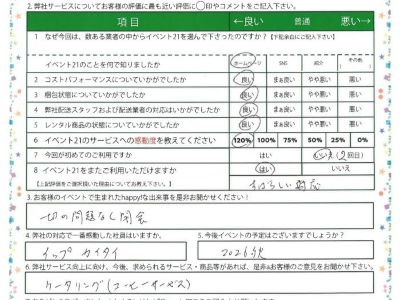 2. 弊社サービスについてお客様の評価に最も近い評価に○印やコメントをご記入下さい。
項目 ←良い 普通 悪い→
1 なぜ今回は、数ある業者の中からイベント21を選んで下さったのですか？【下記余白にご記入下さい】
イベント21のことを何で知りましたか ホームページ SNS 紹介 その他
2 コストパフォーマンスについていかがでしたか 良い まぁ良い やや悪い 悪い
3 梱包状態についていかがでしたか 良い まぁ良い やや悪い 悪い
4 弊社配送スタッフおよび配送業者の対応はいかがでしたか 良い まぁ良い やや悪い 悪い
5 レンタル商品の状態についていかがでしたか 良い まぁ良い やや悪い 悪い
6 イベント21のサービスへの感動度を教えてください 120% 100% 75% 50% 25% 0%
7 今回が初めてのご利用ですか はい いいえ(2回目)
8 イベント21をまたご利用いただけますか はい いいえ
【上記評価をご選択頂いた理由についてお教え下さい。】 すばらしい対応
3. お客様のイベントで生まれたhappy!な出来事を是非お聞かせください!
一切の問題なし閉会
4. 弊社の対応で一番感動した社員はいますか。 5. 今後イベントの予定はございますでしょうか？
2026秋
6. 弊社サービス向上に向け、今後、求められるサービス・商品等があれば、是非お客様のご意見をお聞かせ下さい
ケータリング(コーヒーサービス)